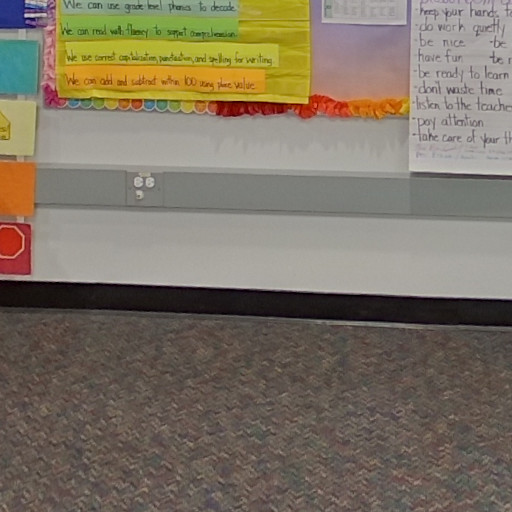 We can use grade level phonics to decode.
We can read with fluency to support comprehension.
We use correct capitalization, punctuation, and spelling for writing.
We can add and subtract within 100 using place value.
-keep your hands to
-do work quietly
-be nice -be
-have fun -be
-be ready to learn
-dont waste time
-listen to the teacher
-pay attention
-take care of your